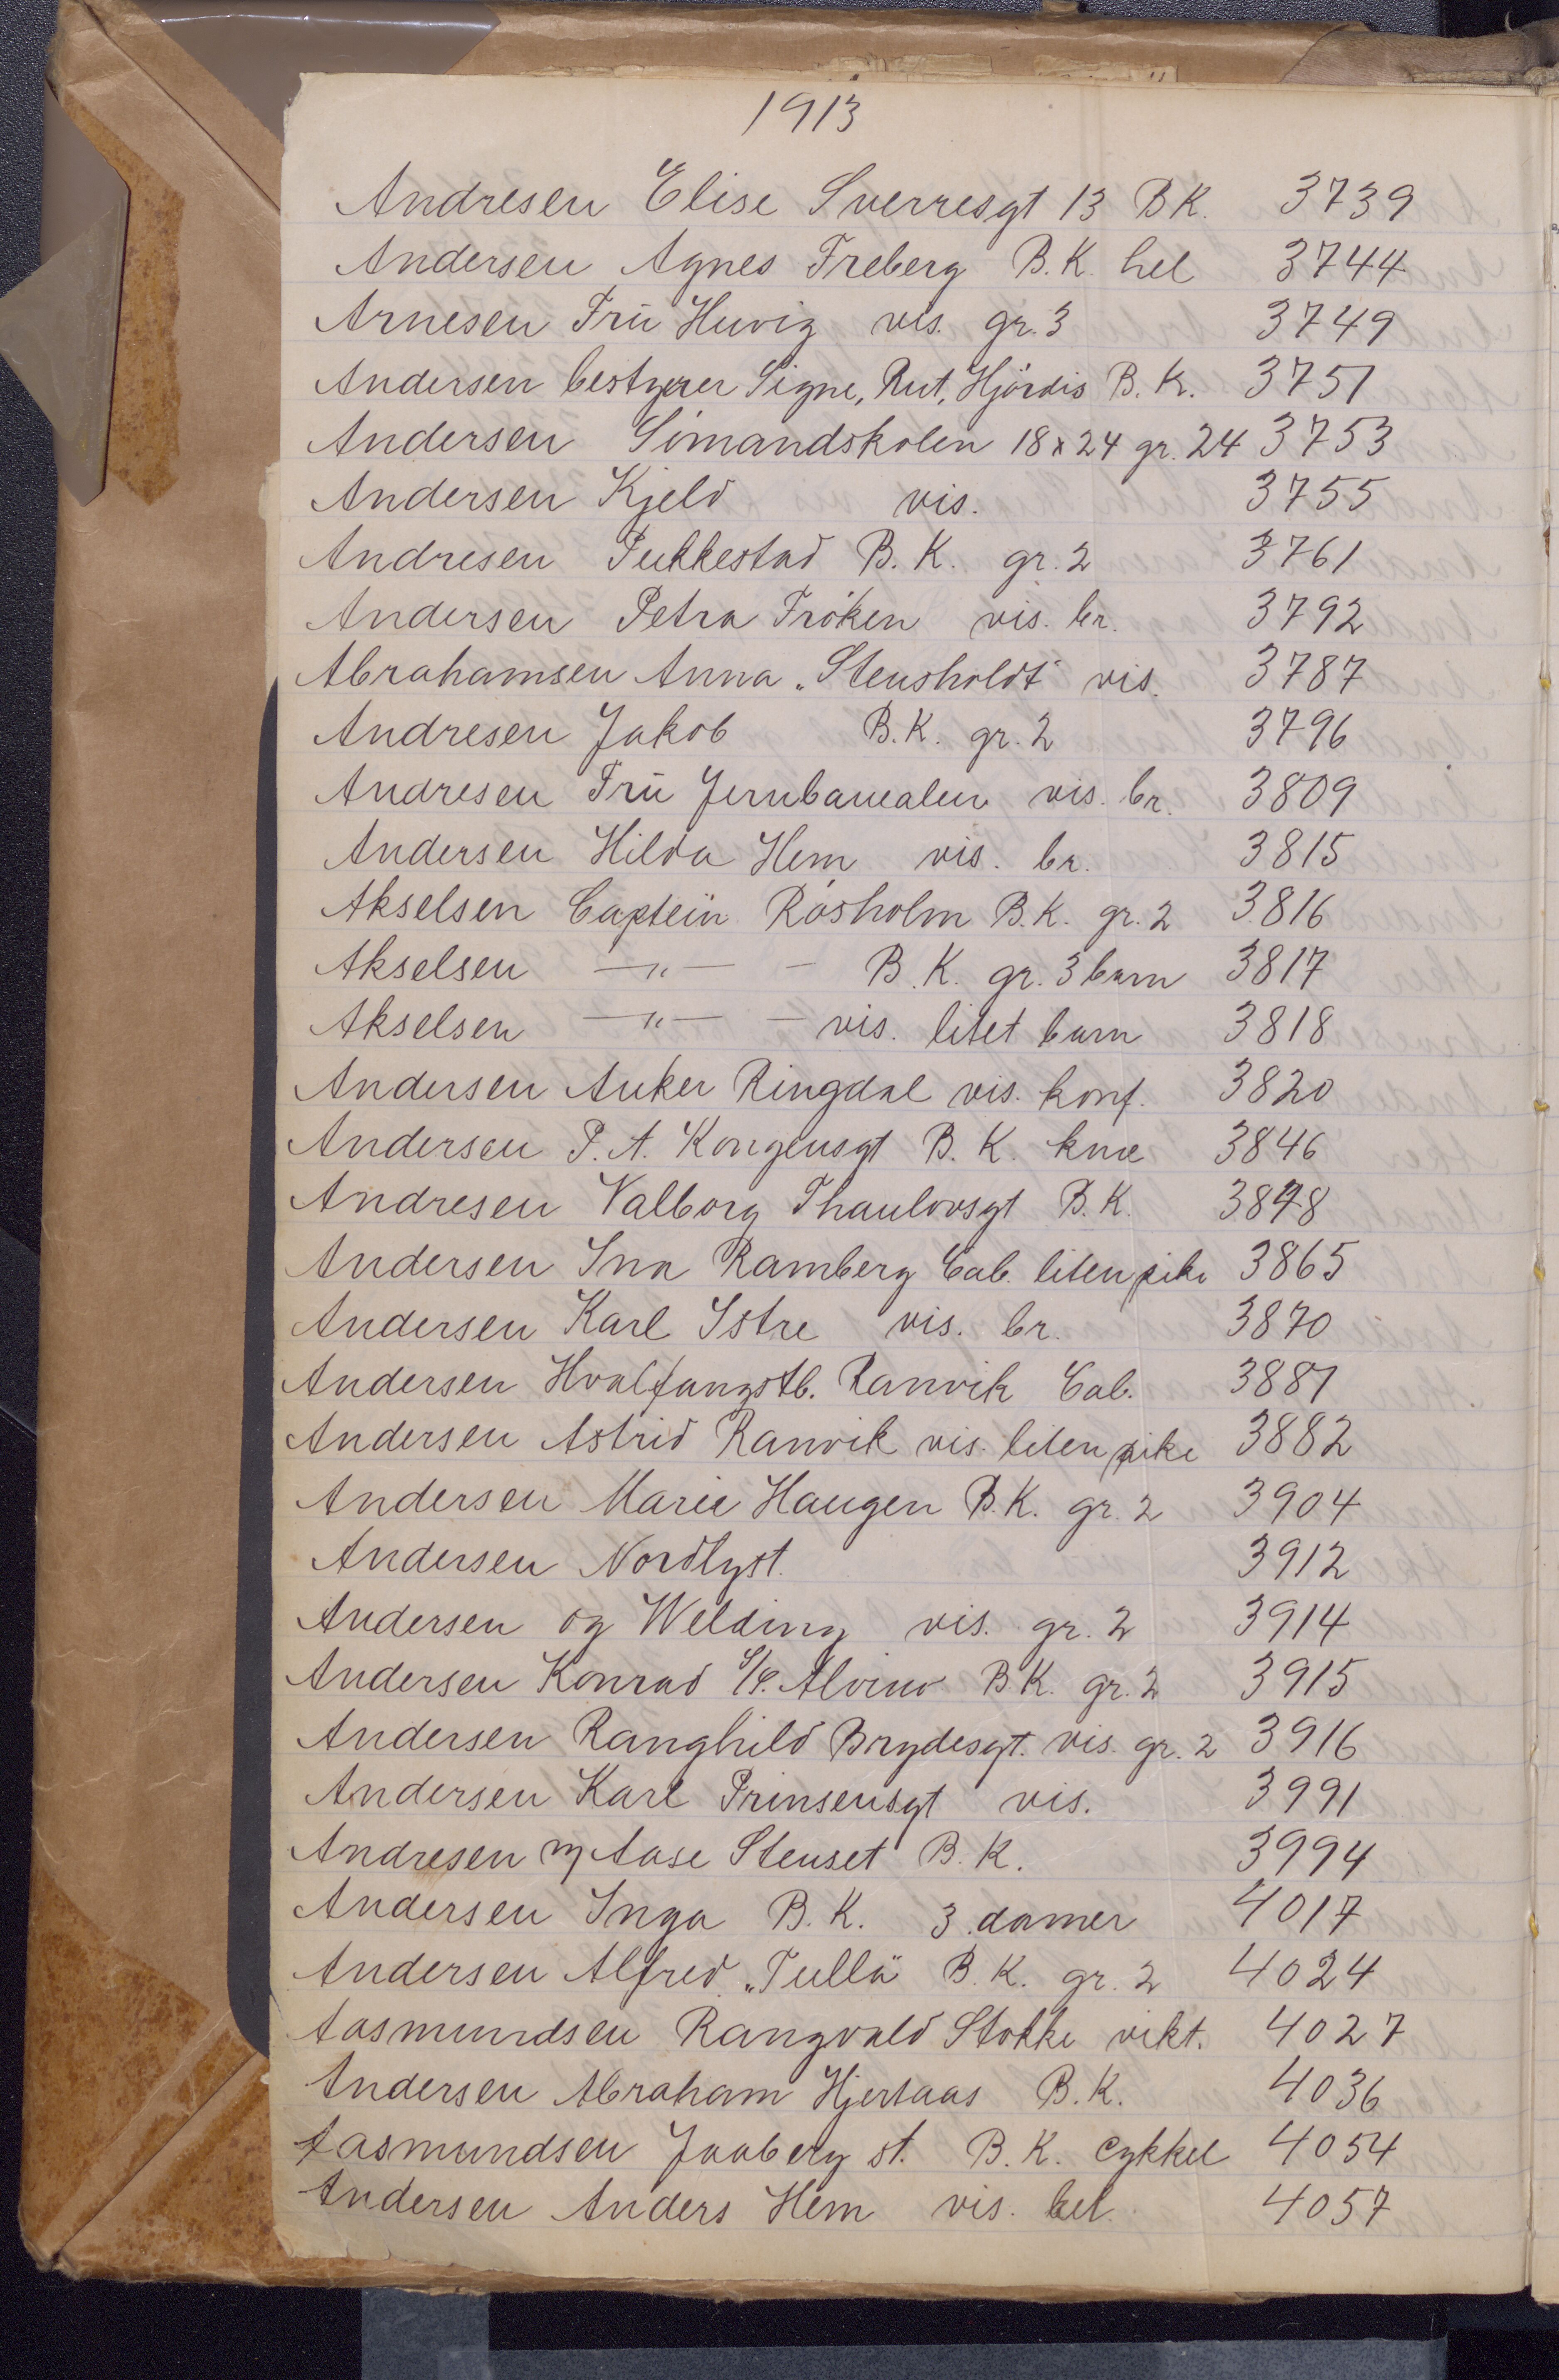 1913
Andresen Elise Sverresgt 13 B K. 3739
Andersen Agnes Freberg B.K. hel 3744
Arnesen Frü Huvig vis. gr. 3 3749
Andersen bestyrer Signe, Rut, Hjørdis B. K. 3751
Andersen Sömandskolen 18x24 gr. 24 3753
Andersen Kjeld vis. 3755
Andresen Pukkestad B. K. gr. 2 3761
Andersen Petra Fröken vis. br. 3792
Abrahamsen Anna „Stensholdt" vis. 3787
Andresen Jakob B.K. gr. 2 3796
Andresen Frü Jernbanealen vis. br. 3809
Andersen Hilda Hem vis. br. 3815
Akselsen Captein Rosholm B.K. gr. 2 3816
Akselsen —„— – B.K. gr. 3 barn 3817
Akselsen —„— – vis. litet barn 3818
Andersen Anker Ringdal vis. konf. 3820
Andersen P. A. Kongensgt B. K. knæ 3846
Andresen Valborg Thaulovsgt B.K. 3848
Andersen Ina Ramberg Cab. liten pike 3865
Andersen Karl Istre vis. br. 3870
Andersen Hvalfangstb. Ranvik Cab. 3881
Andersen Astrid Ranvik vis. liten pike 3882
Andersen Marie Haugen B.K. gr. 2 3904
Andersen Nordlyst. 3912
Andersen og Welding vis. gr. 2 3914
Andersen Konrad S/S. Alvino B.K. gr. 2 3915
Andersen Ranghild Brydesgt. vis. gr. 2 3916
Andersen Karl Prinsensgt vis. 3991
Andresen m/ Aase Stenset B. K. 3994
Andersen Inga B. K. 3 damer 4017
Andersen Alfred „Tulla" B.K. gr. 2 4024
Aasmundsen Rangvald Stokke vikt. 4027
Andersen Abraham Hjertaas B.K. 4036
Aasmundsen Jaaberg st. B. K. cykkel 4054
Andersen Anders Hem vis. hel. 4057